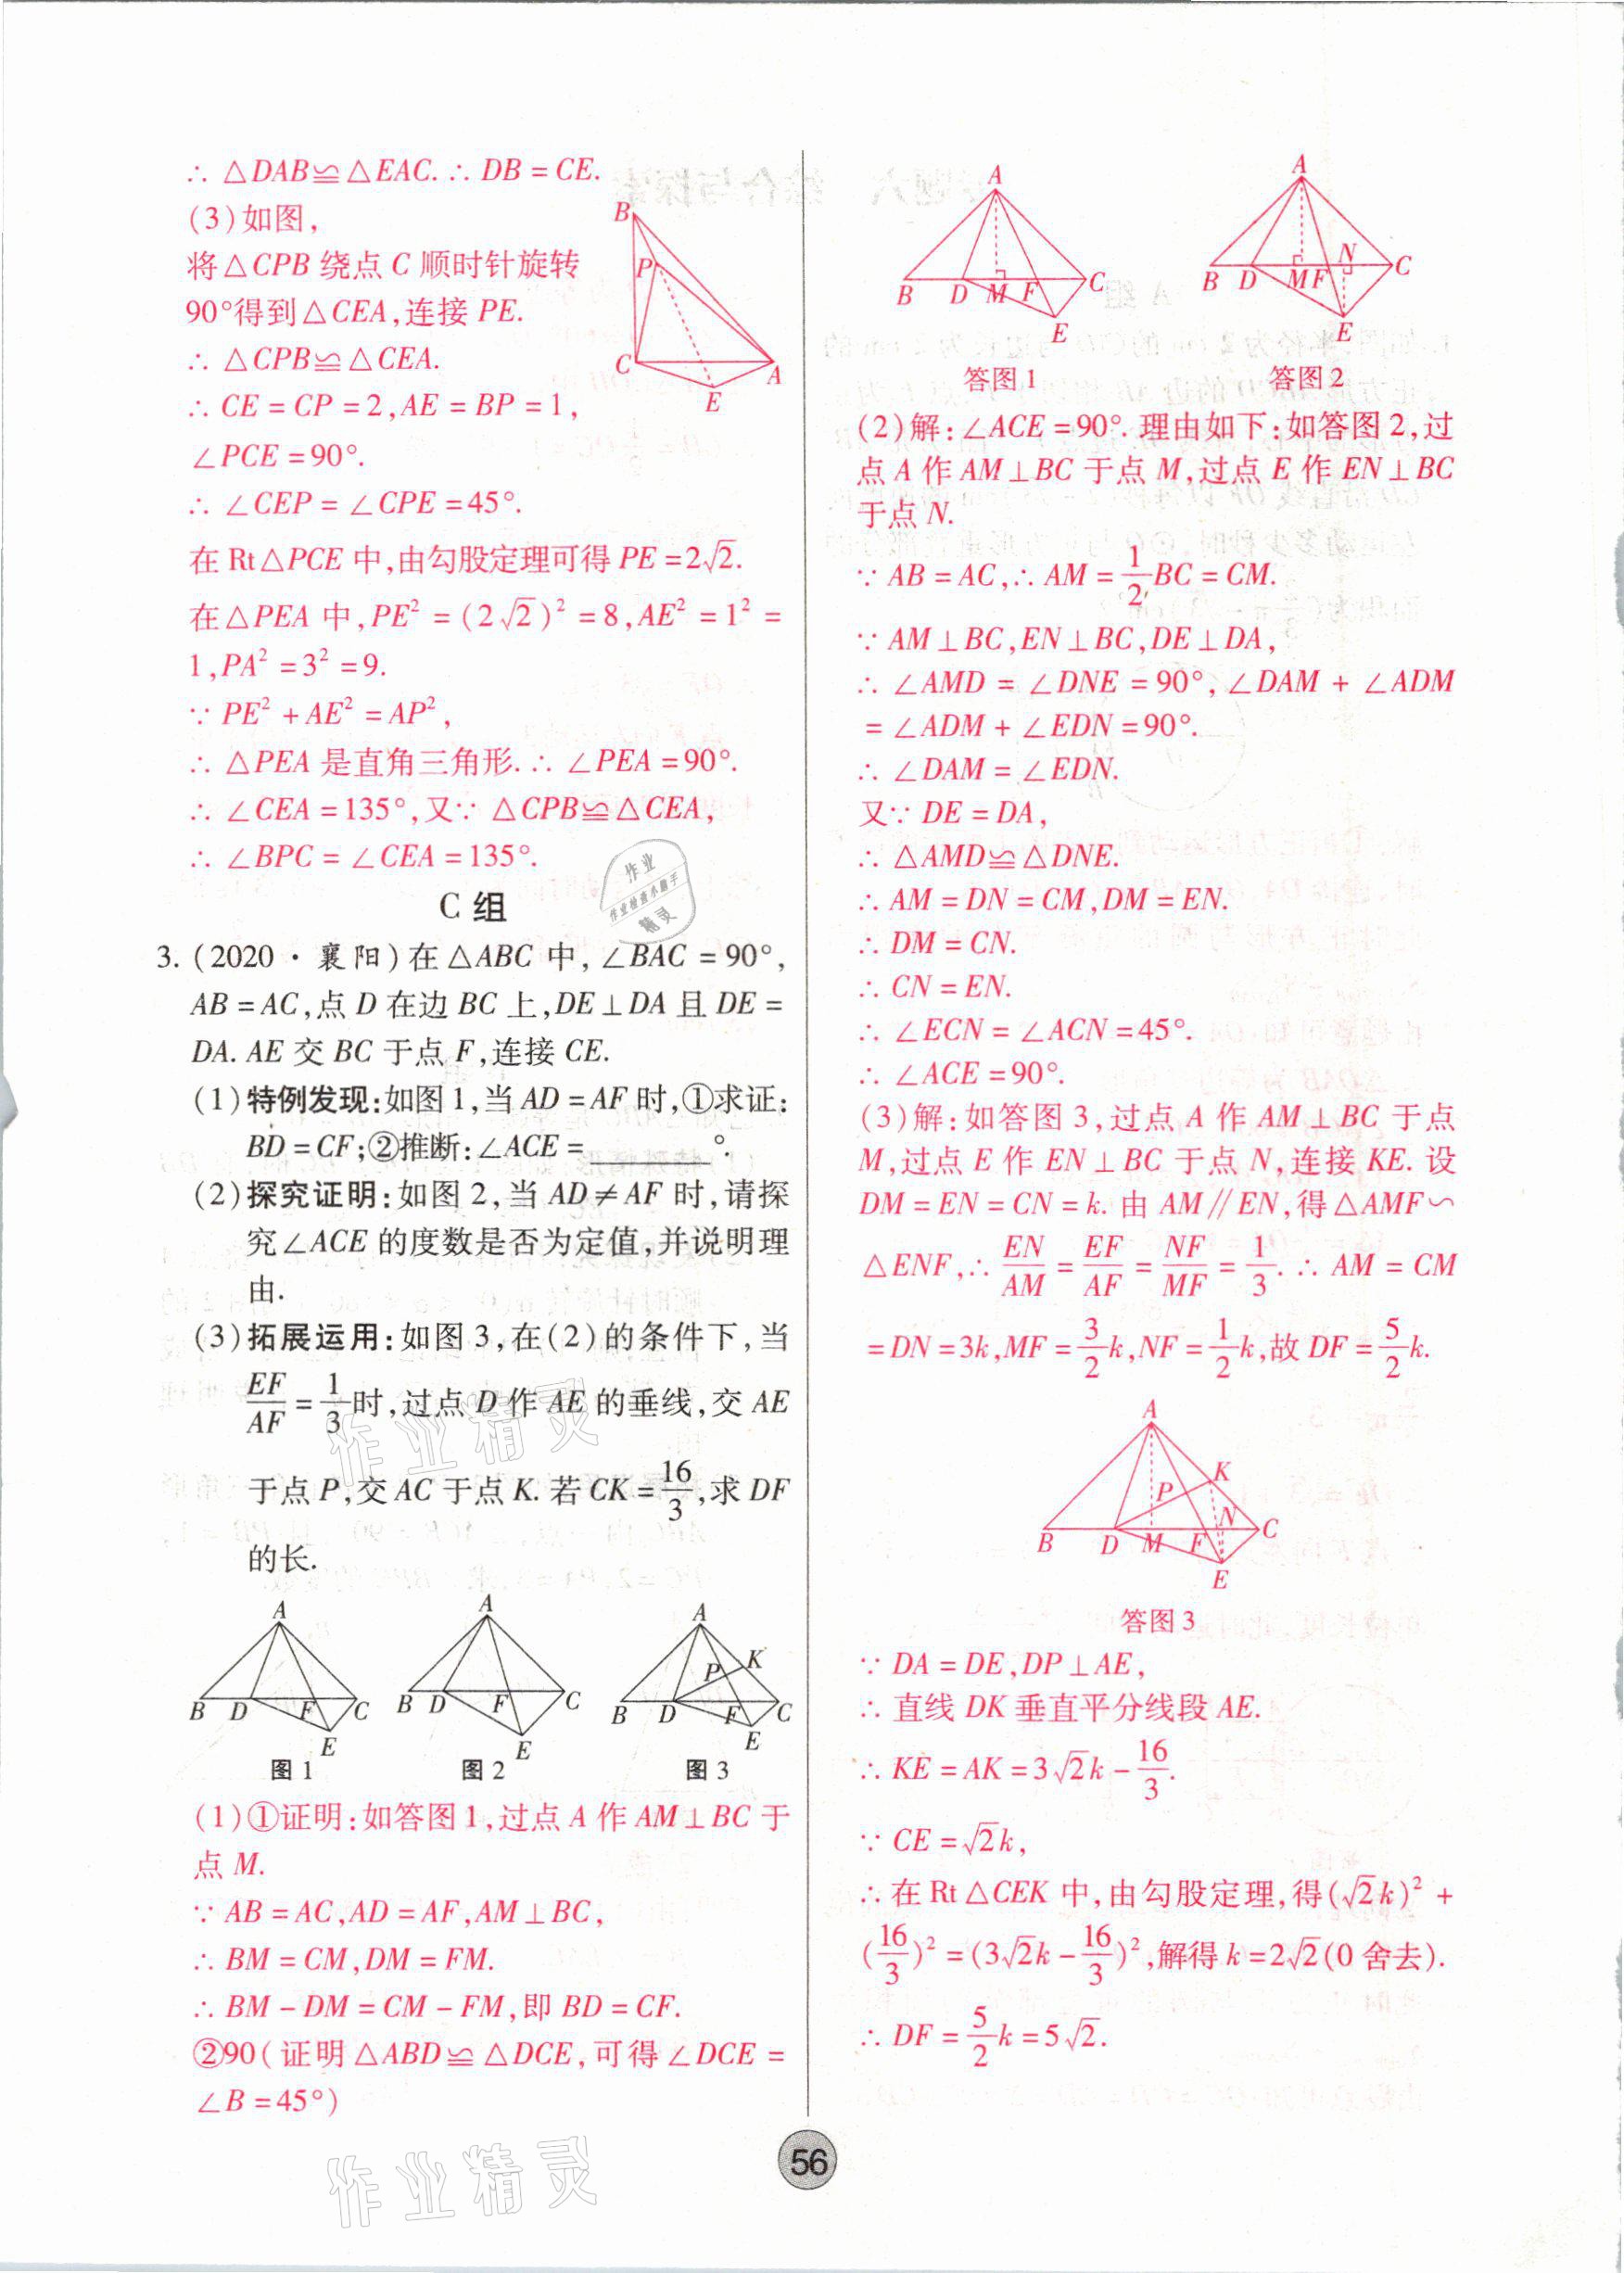 ∴ △DAB≌△EAC. ∴ DB = CE.
(3)如图,
将△CPB 绕点 C 顺时针旋转
90°得到△CEA,连接 PE.
∴ △CPB≌△CEA.
∴ CE = CP = 2,AE = BP = 1,
∠PCE = 90°.
∴ ∠CEP = ∠CPE = 45°.
在 Rt△PCE 中,由勾股定理可得 PE = 2√2.
在△PEA 中,PE² = (2√2)² = 8,AE² = 1² =
1,PA² = 3² = 9.
∵ PE² + AE² = AP²,
∴ △PEA 是直角三角形. ∴ ∠PEA = 90°.
∴ ∠CEA = 135°,又∵ △CPB≌△CEA,
∴ ∠BPC = ∠CEA = 135°.
B
P
C
A
E
C 组
3. (2020·襄阳)在△ABC 中,∠BAC = 90°,
AB = AC,点 D 在边 BC 上,DE⊥DA 且 DE =
DA. AE 交 BC 于点 F,连接 CE.
(1)特例发现:如图 1,当 AD = AF 时,①求证:
BD = CF;②推断:∠ACE = ______°.
(2)探究证明:如图 2,当 AD ≠ AF 时,请探
究∠ACE 的度数是否为定值,并说明理
由.
(3)拓展运用:如图 3,在(2)的条件下,当
EF/AF = 1/3 时,过点 D 作 AE 的垂线,交 AE
于点 P,交 AC 于点 K. 若 CK = 16/3,求 DF
的长.
A B D F C E
图 1
A B D F C E
图 2
A P K B D F C E
图 3
(1)①证明:如答图 1,过点 A 作 AM⊥BC 于
点 M.
∵ AB = AC,AD = AF,AM⊥BC,
∴ BM = CM,DM = FM.
∴ BM − DM = CM − FM,即 BD = CF.
②90(证明△ABD≌△DCE,可得∠DCE =
∠B = 45°)
A B D M F C E
答图 1
A B D M F N C E
答图 2
(2)解:∠ACE = 90°. 理由如下:如答图 2,过
点 A 作 AM⊥BC 于点 M,过点 E 作 EN⊥BC
于点 N.
∵ AB = AC,∴ AM = 1/2 BC = CM.
∵ AM⊥BC,EN⊥BC,DE⊥DA,
∴ ∠AMD = ∠DNE = 90°,∠DAM + ∠ADM
= ∠ADM + ∠EDN = 90°.
∴ ∠DAM = ∠EDN.
又∵ DE = DA,
∴ △AMD≌△DNE.
∴ AM = DN = CM,DM = EN.
∴ DM = CN.
∴ CN = EN.
∴ ∠ECN = ∠ACN = 45°.
∴ ∠ACE = 90°.
(3)解:如答图 3,过点 A 作 AM⊥BC 于点
M,过点 E 作 EN⊥BC 于点 N,连接 KE. 设
DM = EN = CN = k. 由 AM∥EN,得△AMF∽
△ENF,∴ EN/AM = EF/AF = NF/MF = 1/3. ∴ AM = CM
= DN = 3k,MF = 3/2 k,NF = 1/2 k,故 DF = 5/2 k.
A K P N B D M F C E
答图 3
∵ DA = DE,DP⊥AE,
∴ 直线 DK 垂直平分线段 AE.
∴ KE = AK = 3√2k − 16/3.
∵ CE = √2k,
∴ 在 Rt△CEK 中,由勾股定理,得(√2k)² +
(16/3)² = (3√2k − 16/3)²,解得 k = 2√2(0 舍去).
∴ DF = 5/2 k = 5√2.
56
作业
作业检查小助手
精灵
作业精灵
作业精灵